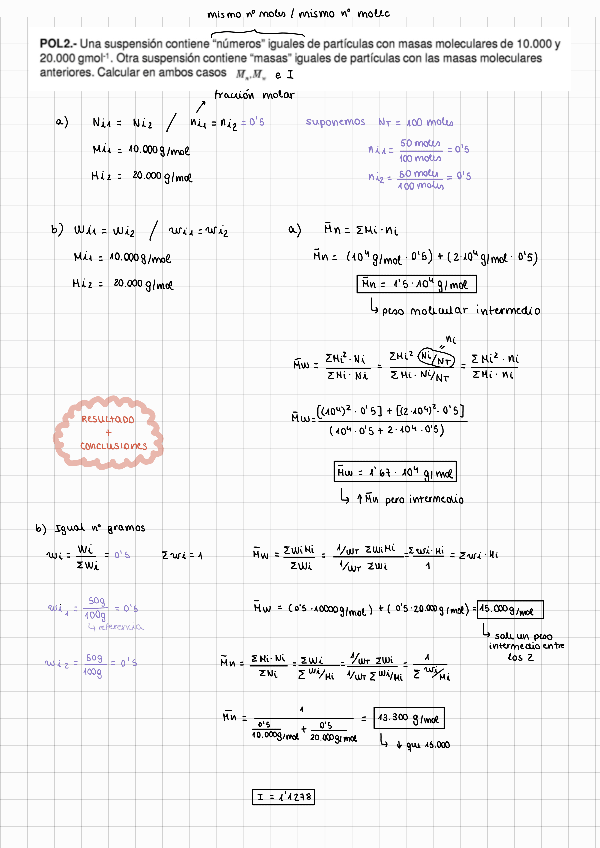 mismo nº moles / mismo nº molec
POL2.- Una suspensión contiene "números" iguales de partículas con masas moleculares de 10.000 y
20.000 gmol⁻¹. Otra suspensión contiene "masas" iguales de partículas con las masas moleculares
anteriores. Calcular en ambos casos M̄n, M̄w e I
fracción molar
a) Ni1 = Ni2 / ni1 = ni2 = 0'5
Mi1 = 10.000 g/mol
Mi2 = 20.000 g/mol
suponemos NT = 100 moles
ni1 = 50 moles / 100 moles = 0'5
ni2 = 50 moles / 100 moles = 0'5
b) Wi1 = Wi2 / wi1 = wi2
Mi1 = 10.000 g/mol
Mi2 = 20.000 g/mol
a) M̄n = ΣMi · ni
M̄n = (10⁴ g/mol · 0'5) + (2·10⁴ g/mol · 0'5)
M̄n = 1'5 · 10⁴ g/mol
↳ peso molecular intermedio
ni
M̄w = ΣMi² · Ni / ΣMi · Ni = ΣMi² (Ni/NT) / ΣMi · Ni/NT = ΣMi² · ni / ΣMi · ni
M̄w = [(10⁴)² · 0'5] + [(2·10⁴)² · 0'5] / (10⁴ · 0'5 + 2·10⁴ · 0'5)
RESULTADO
+
CONCLUSIONES
M̄w = 1'67 · 10⁴ g/mol
↳ ↑ M̄n pero intermedio
b) Igual nº gramos
wi = Wi / ΣWi = 0'5 Σwi = 1
M̄w = ΣWiMi / ΣWi = 1/WT ΣWiMi / 1/WT ΣWi = Σwi · Mi / 1 = Σwi · Mi
wi1 = 50g / 100g = 0'5
↳ referencia
M̄w = (0'5 · 10000 g/mol) + (0'5 · 20.000 g/mol) = 15.000 g/mol
↳ sale un peso
intermedio entre
los 2
wi2 = 50g / 100g = 0'5
M̄n = ΣMi · Ni / ΣNi = ΣWi / ΣWi/Mi = 1/WT ΣWi / 1/WT ΣWi/Mi = 1 / Σwi/Mi
M̄n = 1 / 0'5 / 10.000 g/mol + 0'5 / 20.000 g/mol = 13.300 g/mol
↳ ↓ que 15.000
I = 1'1278